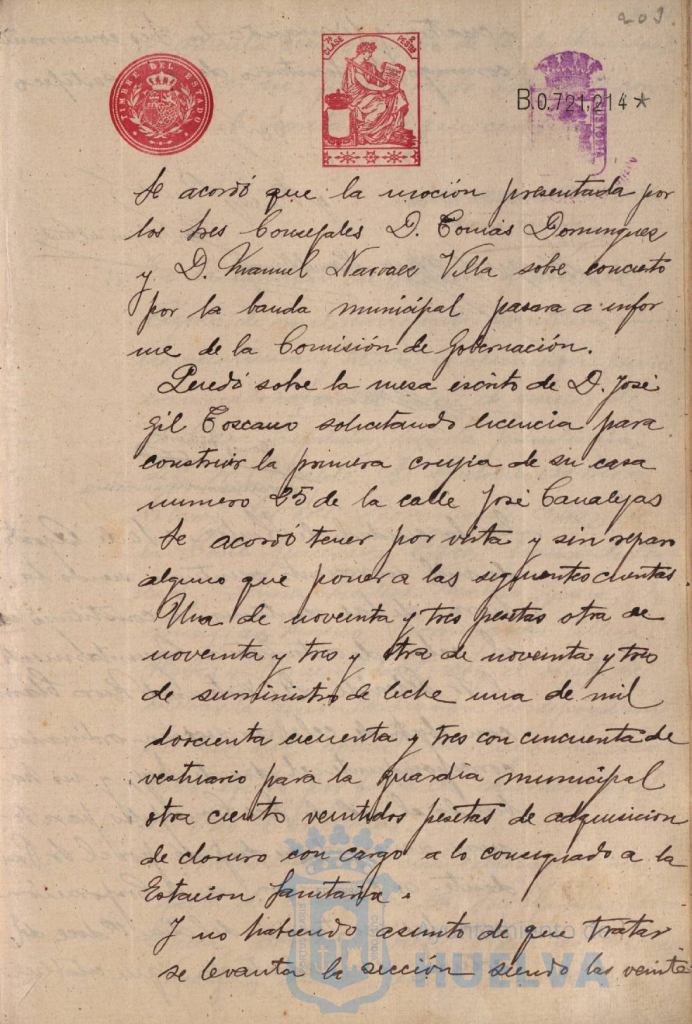 203.
TIMBRE DEL ESTADO
7ª CLASE PESETAS
B.0.721,214 *
Se acordó que la moción presentada por
los tres Consejales D. Tomás Dominguez
y D. Manuel Narvaez Villa sobre concierto
por la banda municipal pasara a infor
me de la Comisión de Gobernación.
Quedó sobre la mesa escrito de D. José
Gil Toscano solicitando licencia para
construir la primera crujia de su casa
numero 25 de la calle José Canalejas
Se acordó tener por vista y sin reparo
alguno que poner a las siguientes cuentas.
Una de noventa y tres pesetas otra de
noventa y tres y otra de noventa y tres
de suministro de leche una de mil
dorcienta cicuenta y tres con cincuenta de
vestuario para la guardia municipal
otra ciento veintidos pesetas de adquisicion
de cloruro con cargo a lo consignado a la
Estacion Sanitaria.
Y no habiendo asunto de que tratar
se levanta la sección siendo las veinte
HUELVA